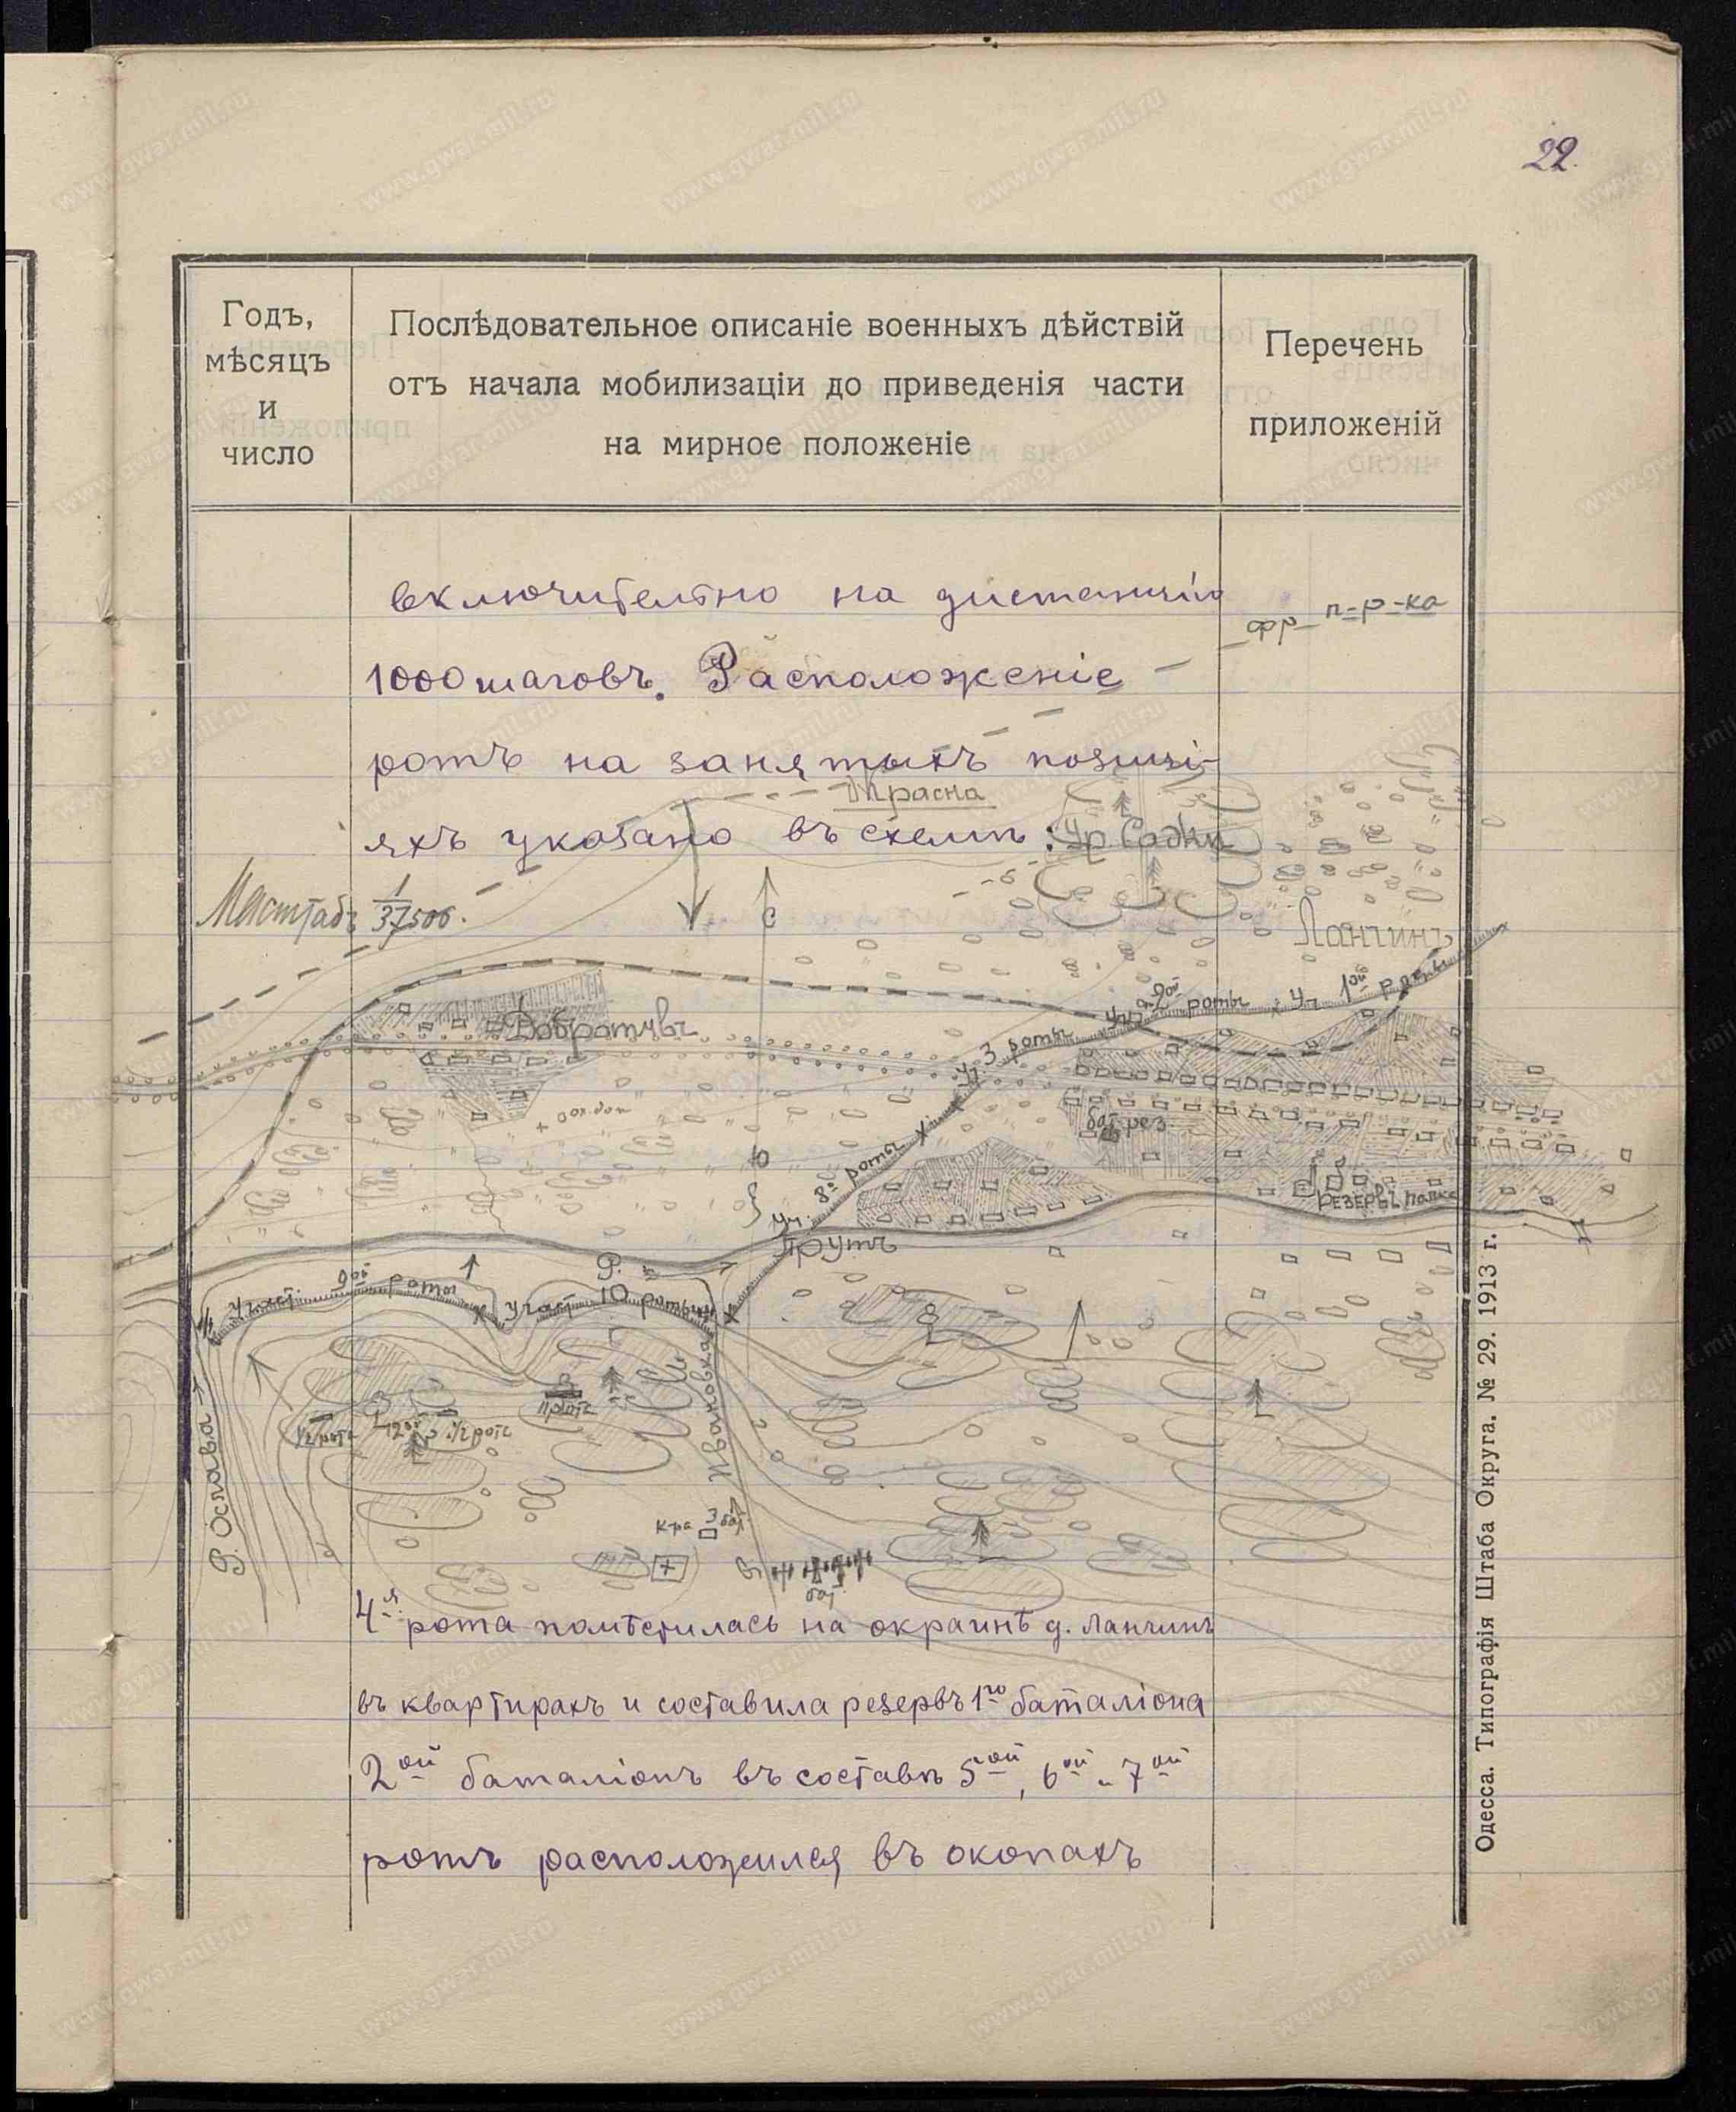 22.
Годъ,
мѣсяцъ
и
число
Послѣдовательное описаніе военныхъ дѣйствій
отъ начала мобилизаціи до приведенія части
на мирное положеніе
Перечень
приложеній
включительно на дистанцію
1000 шаговъ. Расположеніе
ротъ на занятыхъ позиці-
яхъ указано въ схемѣ:
фр п-р-ка
Красна
Ур Садки
Масштабъ 1/37500.
С
Ланчинъ
Добротовъ
Уч 3 роты
роты
Уч 1ой роты
бат рез
Ю
Уч. 8й роты
Резервъ полка
Р. Прутъ
Участ. 9ой роты
Участ 10 роты
Р. Ослава
½ роты
12ой
½ роты
Ивановка
3 бат.
бат.
4я рота помѣстилась на окраинѣ д. Ланчинъ
въ квартирахъ и составила резервъ 1го баталіона
2ой баталіонъ въ составѣ 5ой, 6ой и 7ой
ротъ расположился въ окопахъ
Одесса. Типографія Штаба Округа. № 29. 1913 г.
www.gwar.mil.ru